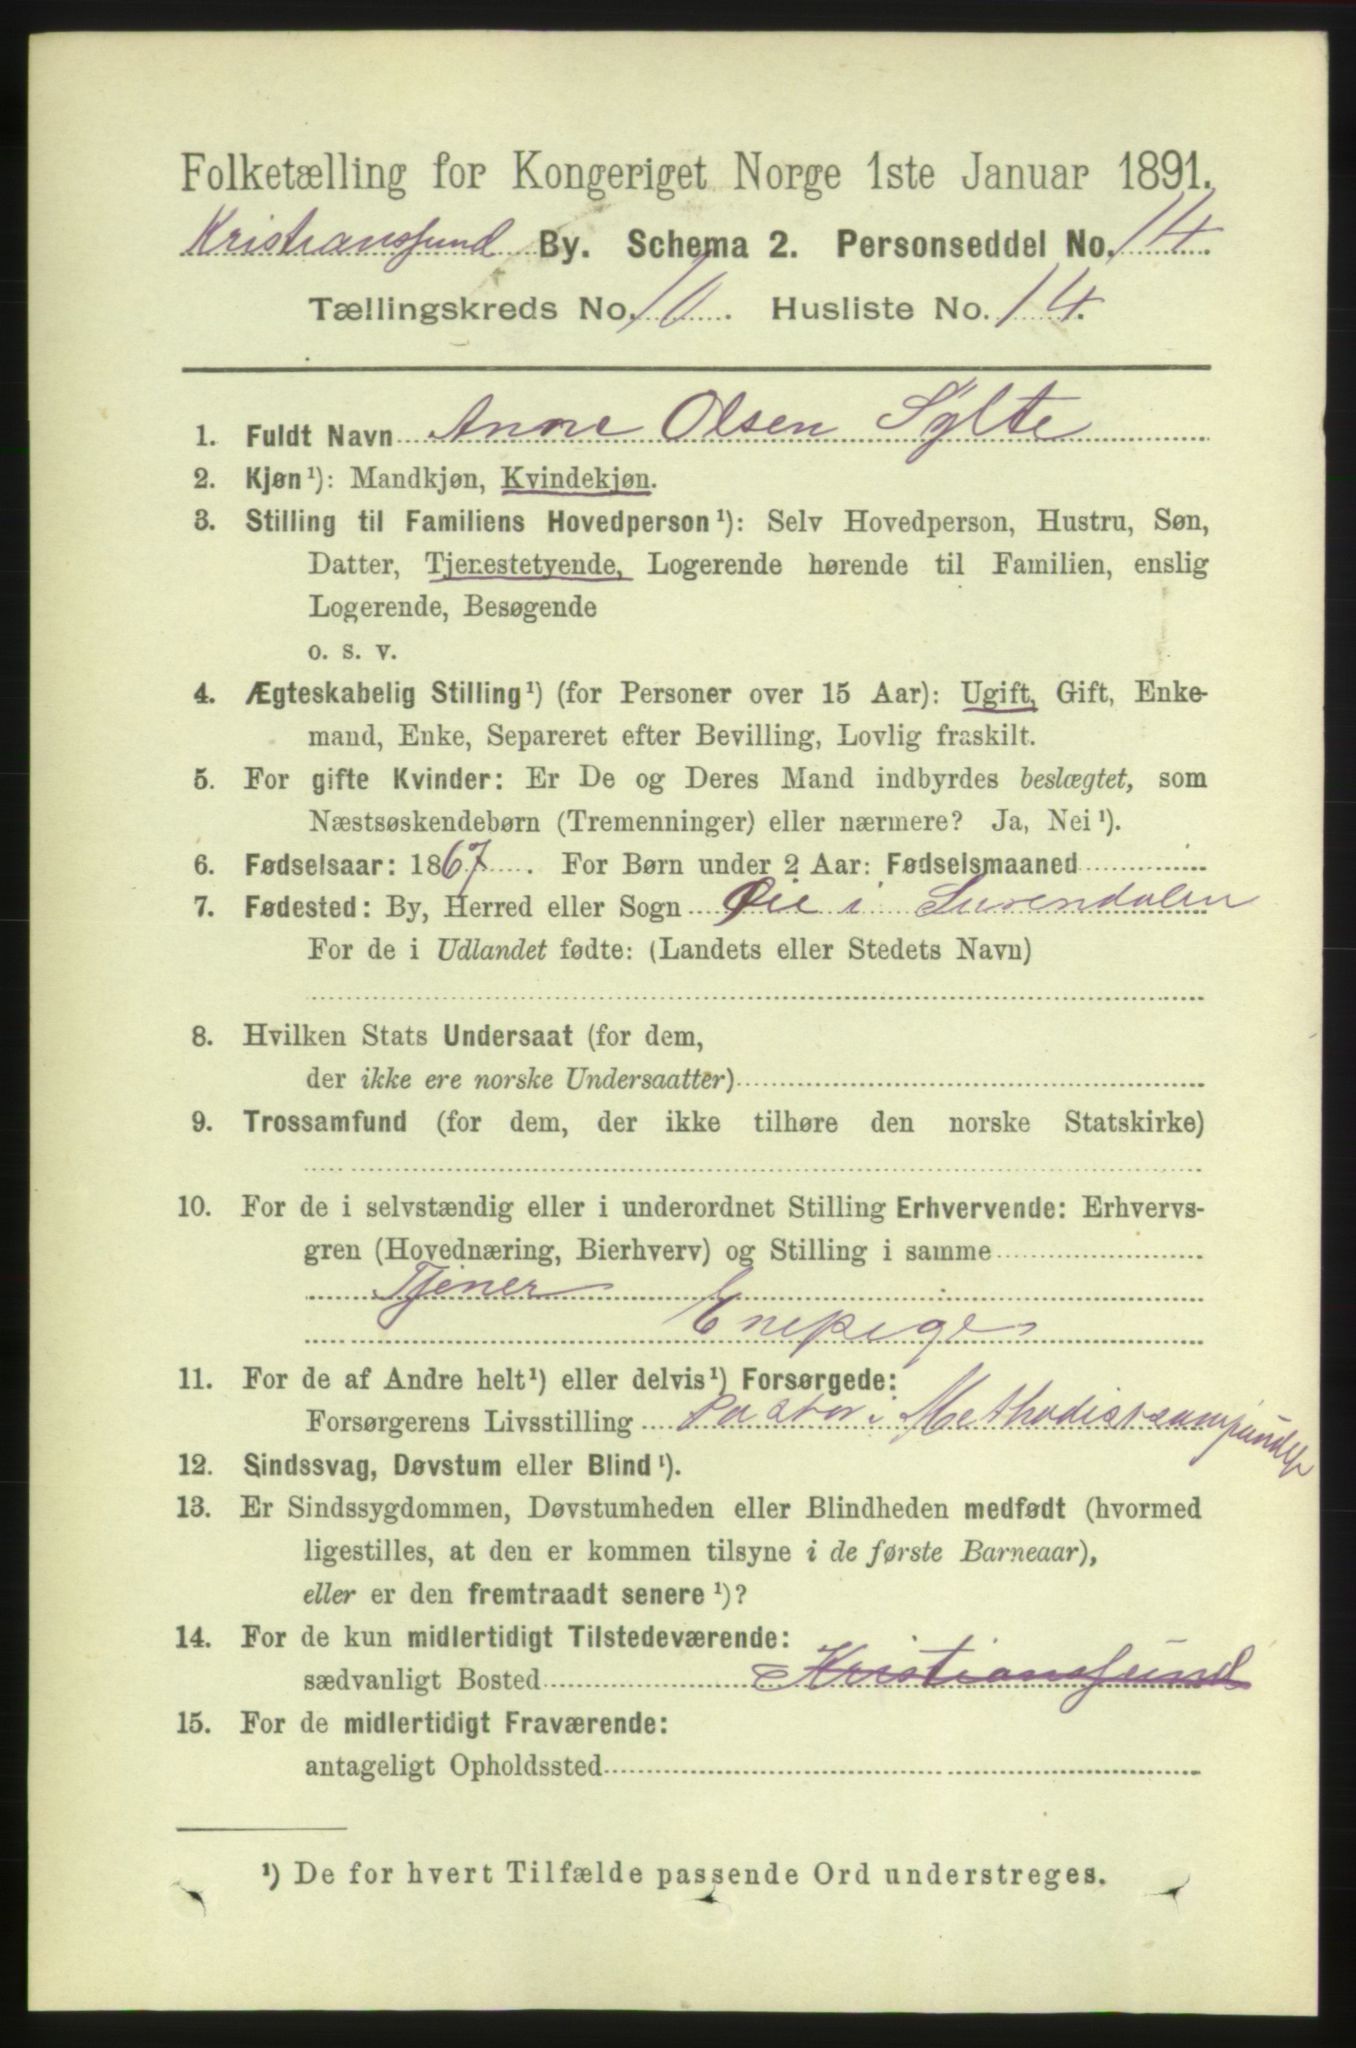 Folketælling for Kongeriget Norge 1ste Januar 1891.
Kristianssund By. Schema 2. Personseddel No. 14.
Tællingskreds No. 10. Husliste No. 14.
1. Fuldt Navn Anne Olsen Sylte
2. Kjøn¹): Mandkjøn, Kvindekjøn.
3. Stilling til Familiens Hovedperson¹): Selv Hovedperson, Hustru, Søn,
Datter, Tjenestetyende, Logerende hørende til Familien, enslig
Logerende, Besøgende
o. s. v.
4. Ægteskabelig Stilling¹) (for Personer over 15 Aar): Ugift, Gift, Enke-
mand, Enke, Separeret efter Bevilling, Lovlig fraskilt.
5. For gifte Kvinder: Er De og Deres Mand indbyrdes beslægtet, som
Næstsøskendebørn (Tremenninger) eller nærmere? Ja, Nei¹).
6. Fødselsaar: 1867. For Børn under 2 Aar: Fødselsmaaned
7. Fødested: By, Herred eller Sogn Øie i Surendalen
For de i Udlandet fødte: (Landets eller Stedets Navn)
8. Hvilken Stats Undersaat (for dem,
der ikke ere norske Undersaatter)
9. Trossamfund (for dem, der ikke tilhøre den norske Statskirke)
10. For de i selvstændig eller i underordnet Stilling Erhvervende: Erhvervs-
gren (Hovednæring, Bierhverv) og Stilling i samme
Tjener
Enepige
11. For de af Andre helt¹) eller delvis¹) Forsørgede:
Forsørgerens Livsstilling Pastor i Methodistsamfundet
12. Sindssvag, Døvstum eller Blind¹).
13. Er Sindssygdommen, Døvstumheden eller Blindheden medfødt (hvormed
ligestilles, at den er kommen tilsyne i de første Barneaar),
eller er den fremtraadt senere¹)?
14. For de kun midlertidigt Tilstedeværende:
sædvanligt Bosted Kristianssund
15. For de midlertidigt Fraværende:
antageligt Opholdssted
¹) De for hvert Tilfælde passende Ord understreges.